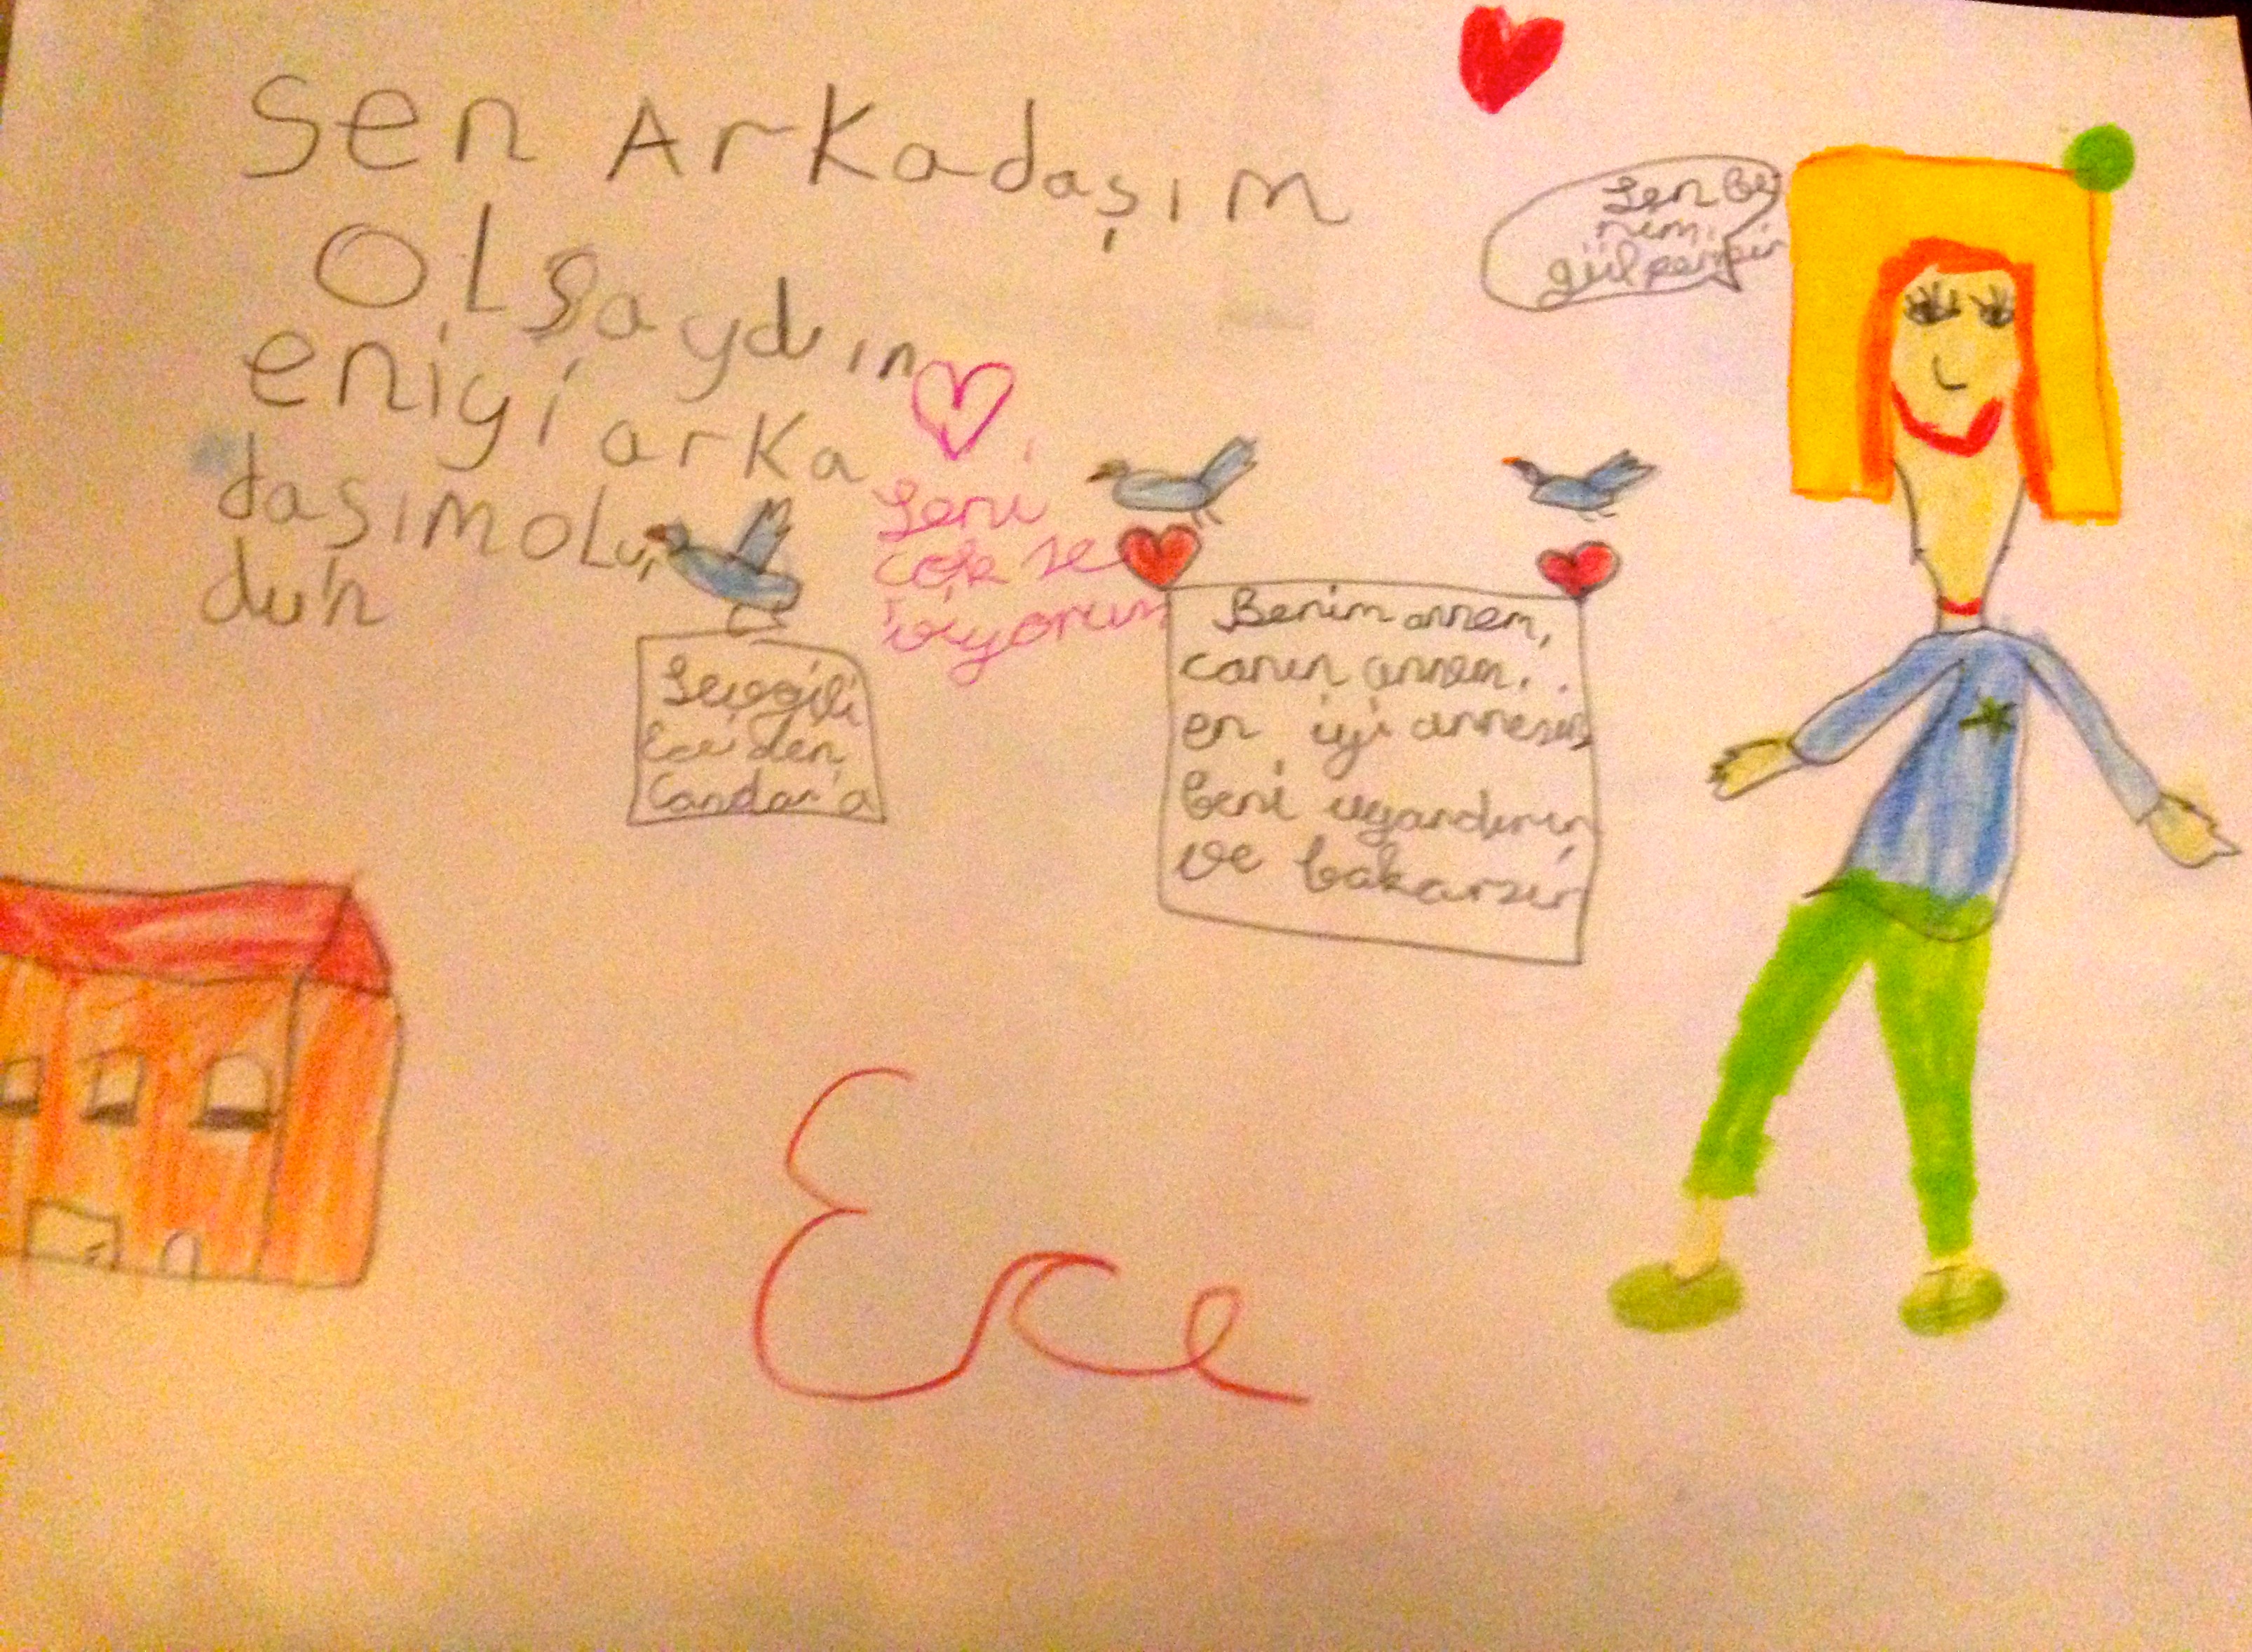 Sen Arkadaşım
Olsaydın
eniyi arka
daşımolur
dun
Sen Be
nim
gülpenpin
Seni
çok se
viyorum
Sevgili
Ece'den
Candan'a
Benim annem,
canın annem..
en iyi annesin
beni uyandırırın
ve bakarsın
Ece